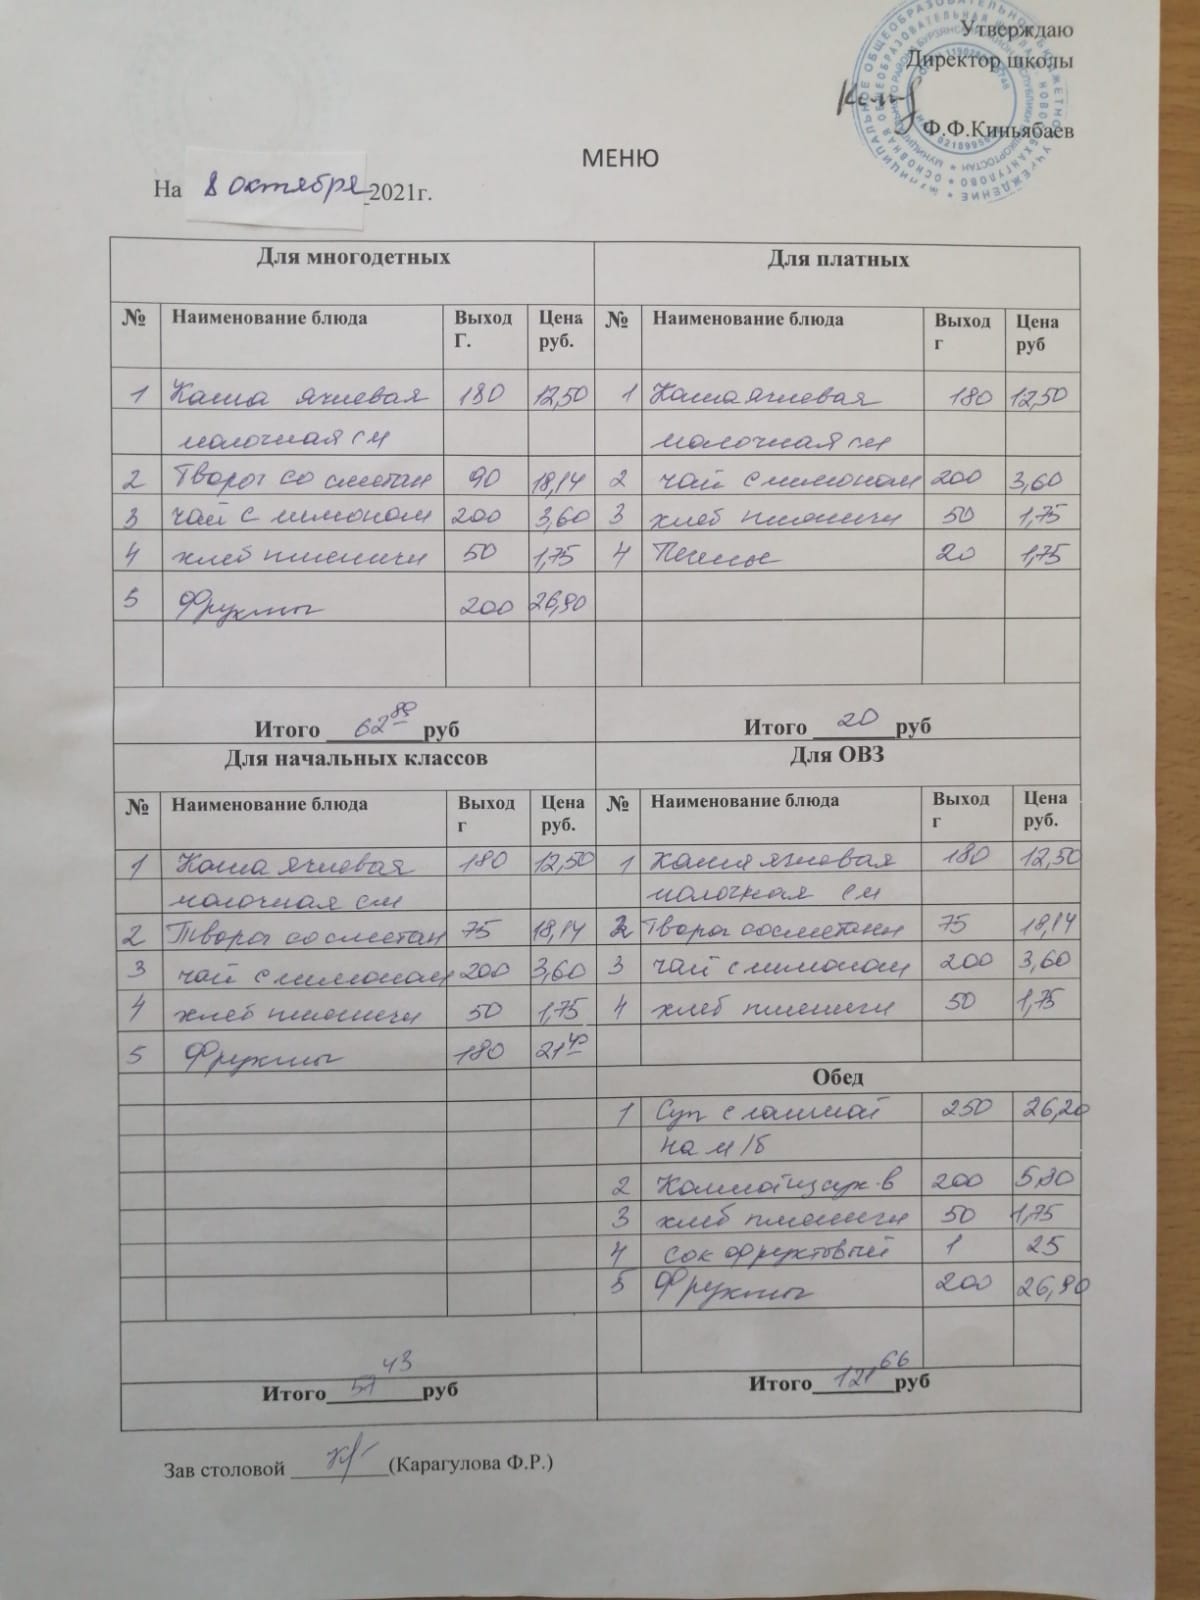 Утверждаю
Директор школы
Ф.Ф.Киньябаев
МЕНЮ
На 8 октября 2021г.
Для многодетных Для платных
№ Наименование блюда Выход Г. Цена руб. № Наименование блюда Выход г Цена руб
1 Каша ячневая 180 12,50 1 Каша ячневая 180 12,50
молочная см молочная см
2 Творог со сметан 90 18,14 2 чай с лимоном 200 3,60
3 чай с лимоном 200 3,60 3 хлеб пшеничн 50 1,75
4 хлеб пшеничн 50 1,75 4 Печенье 20 1,75
5 Фрукты 200 26,90
Итого 62 89 руб Итого 20 руб
Для начальных классов Для ОВЗ
№ Наименование блюда Выход г Цена руб. № Наименование блюда Выход г Цена руб.
1 Каша ячневая 180 12,50 1 Каша ячневая 180 12,50
молочная см молочная см
2 Творог со сметан 75 18,14 2 Творог со сметани 75 18,14
3 чай с лимоном 200 3,60 3 чай с лимоном 200 3,60
4 хлеб пшеничн 50 1,75 4 хлеб пшеничн 50 1,75
5 Фрукты 180 21
Обед
1 Суп с лапшой 250 26,20
на м/б
2 Компот из сух-в 200 5,80
3 хлеб пшеничн 50 1,75
4 сок фруктовый 1 25
5 Фрукты 200 26,90
Итого 57 43 руб Итого 121 66 руб
Зав столовой (Карагулова Ф.Р.)